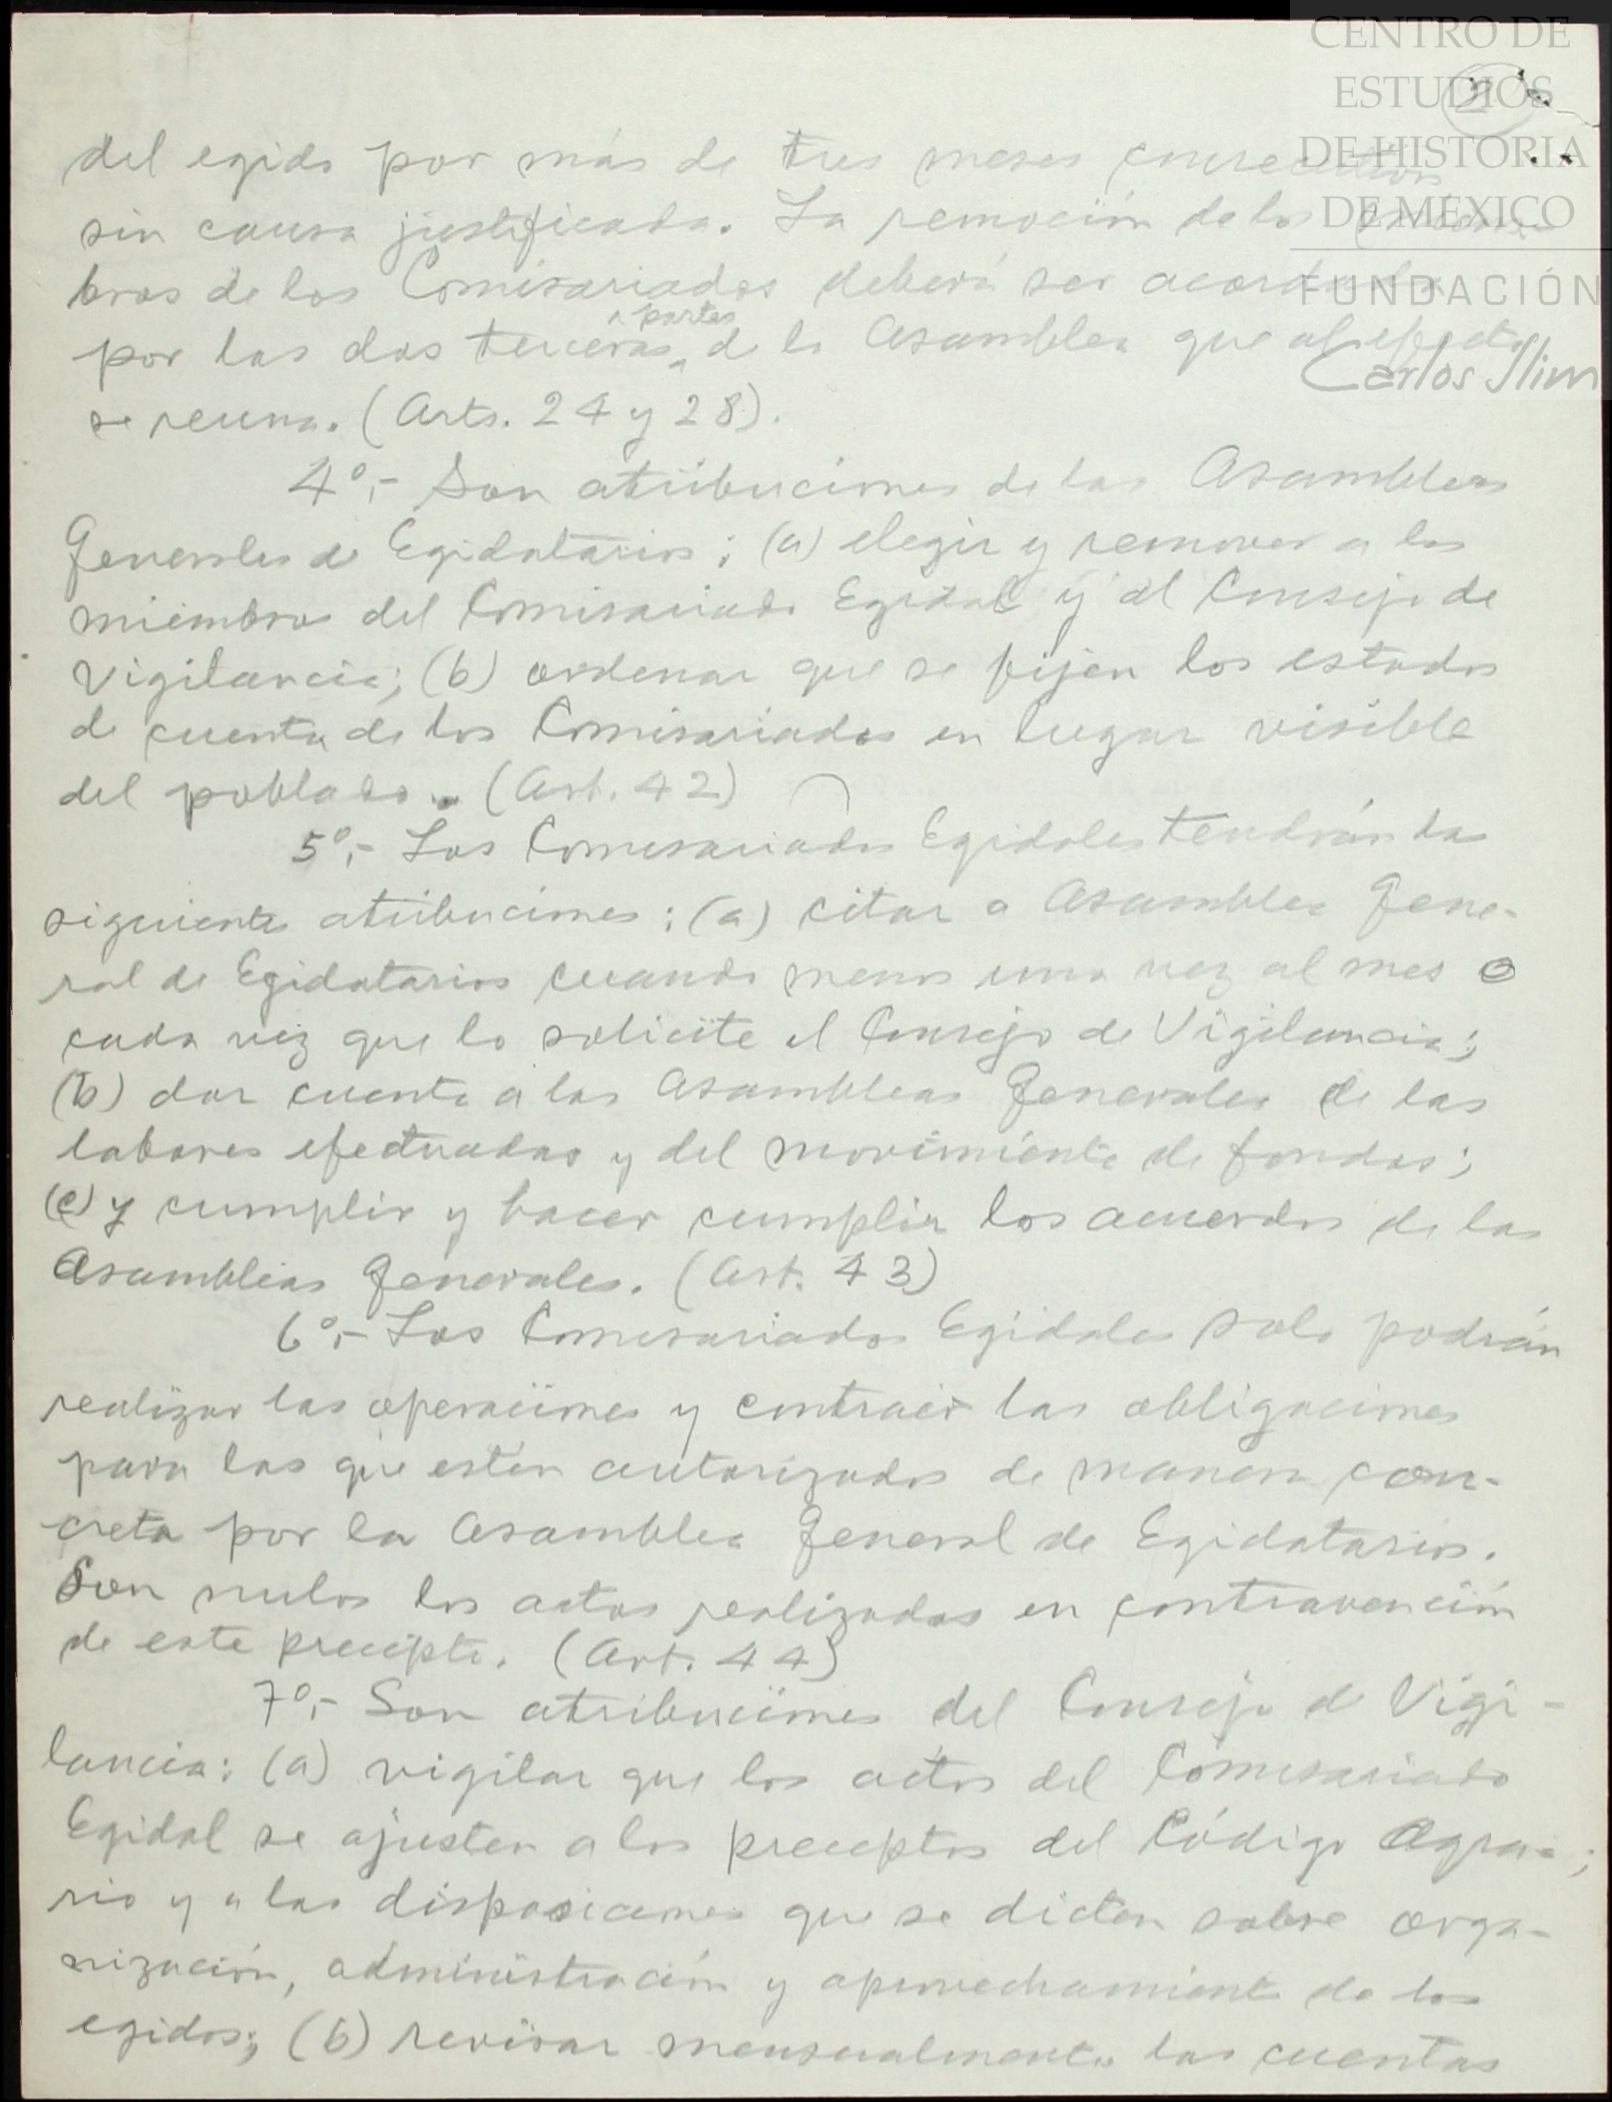 CENTRO DE
ESTUDIOS
DE HISTORIA
DE MÉXICO
FUNDACIÓN
Carlos Slim
2
del egido por más de tres meses consecutivos
sin causa justificada. La remoción de los miem-
bros de los Comisariados deberá ser acordada
por las dos terceras partes de la Asamblea que al efecto
se reuna. (Arts. 24 y 28).
4º.- Son atribuciones de las Asambleas
Generales de Egidatarios: (a) elegir y remover a los
miembros del Comisariado Egidal y al Consejo de
Vigilancia; (b) ordenar que se fijen los estados
de cuenta de los Comisariados en lugar visible
del poblado. (Art. 42)
5º.- Los Comisariados Egidales tendrán las
siguientes atribuciones: (a) citar a Asamblea Gene-
ral de Egidatarios cuando menos una vez al mes o
cada vez que lo solicite el Consejo de Vigilancia;
(b) dar cuenta a las Asambleas Generales de las
labores efectuadas y del movimiento de fondos;
(c) y cumplir y hacer cumplir los acuerdos de las
Asambleas Generales. (Art. 43)
6º.- Los Comisariados Egidales solo podrán
realizar las operaciones y contraer las obligaciones
para las que estén autorizados de manera con-
creta por la Asamblea General de Egidatarios.
Son nulos los actos realizados en contravención
de este precepto. (Art. 44)
7º.- Son atribuciones del Consejo de Vigi-
lancia: (a) vigilar que los actos del Comisariado
Egidal se ajusten a los preceptos del Código Agra-
rio y a las disposiciones que se dicten sobre orga-
nización, administración y aprovechamiento de los
egidos; (b) revisar mensualmente las cuentas